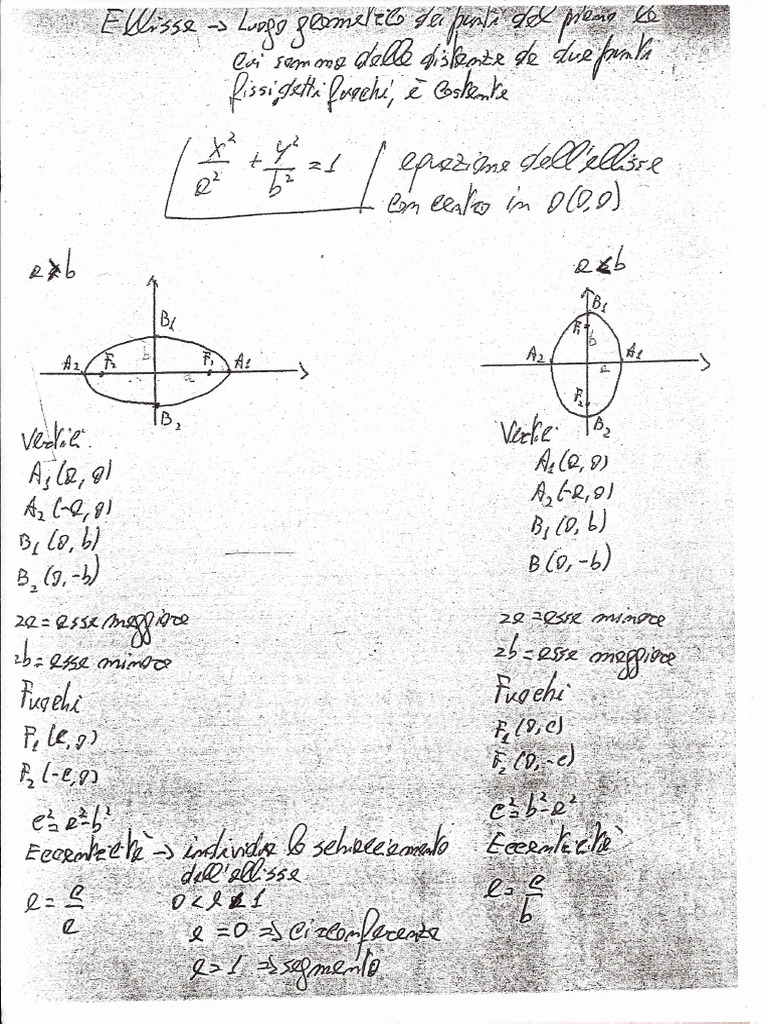 Ellisse → Luogo geometrico dei punti del piano la
cui somma delle distanze da due punti
fissi, detti fuochi, è costante
x²/a² + y²/b² = 1 equazione dell'ellisse
con centro in O(0,0)
a>b
B1
b
A2 F2 a F1 A1
B2
Vertici
A1(a, 0)
A2(-a, 0)
B1(0, b)
B2(0, -b)
2a = asse maggiore
2b = asse minore
Fuochi
F1(c, 0)
F2(-c, 0)
c² = a²-b²
Eccentricità → individua lo schiacciamento
dell'ellisse
e = c/a
0 < e < 1
e = 0 ⇒ circonferenza
e = 1 ⇒ segmento
a<b
B1
F1
b
A2 a A1
F2
B2
Vertici
A1(a, 0)
A2(-a, 0)
B1(0, b)
B(0, -b)
2a = asse minore
2b = asse maggiore
Fuochi
F1(0, c)
F2(0, -c)
c² = b²-a²
Eccentricità
e = c/b